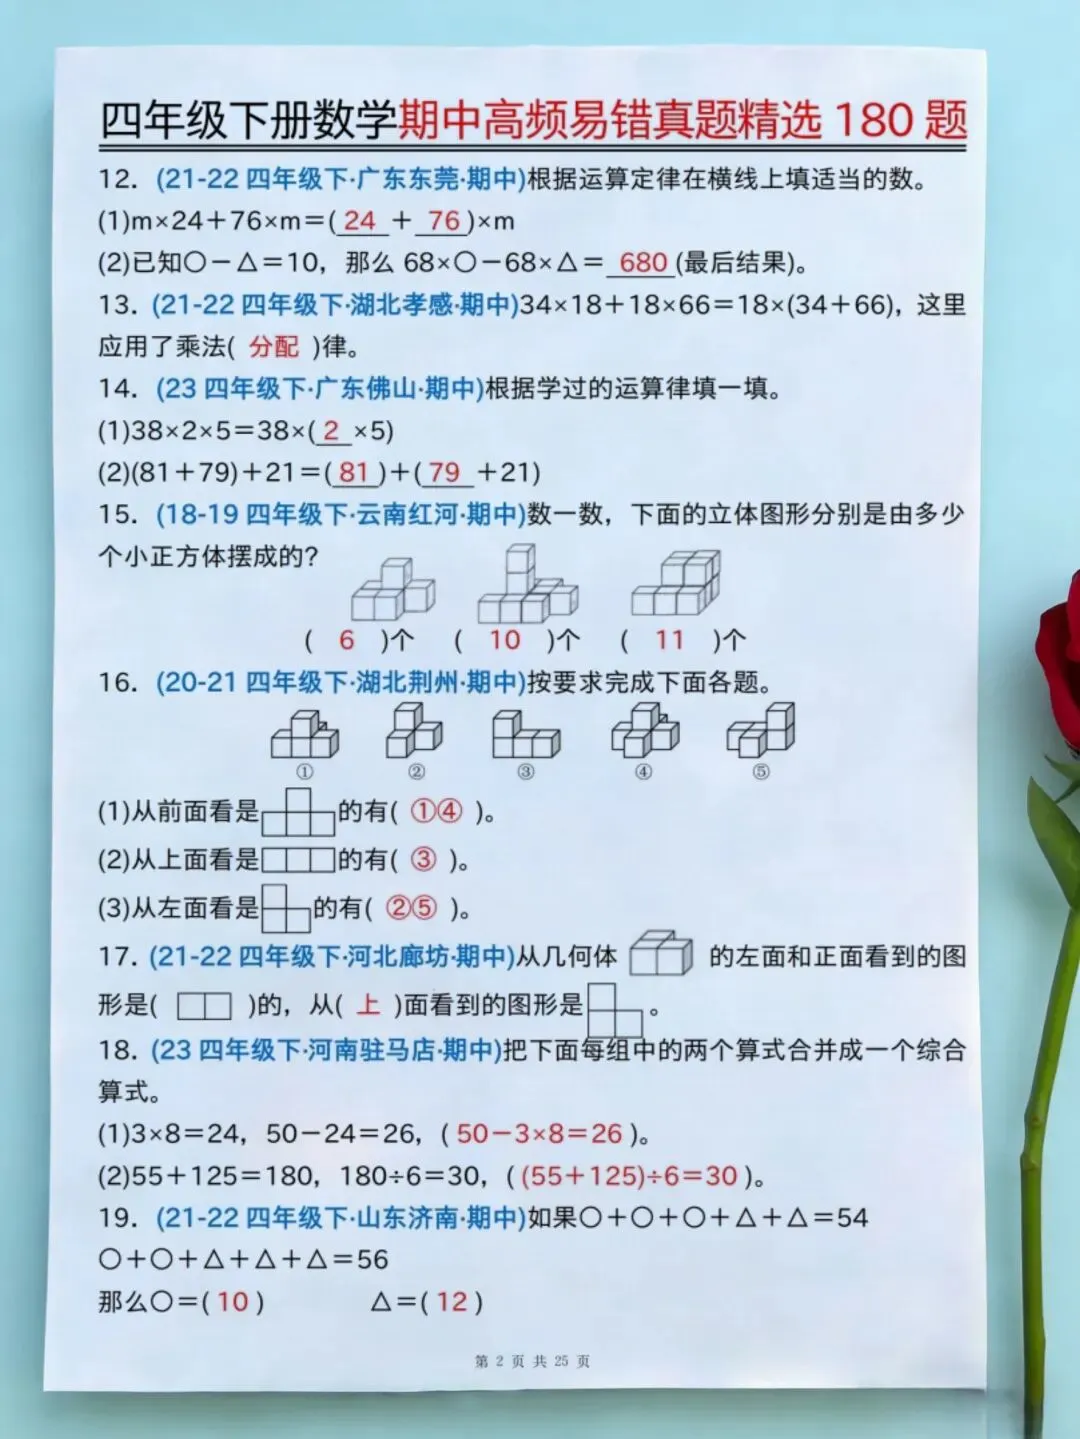 四年级下册数学期中高频易错真题精选 180 题
12. (21-22 四年级下·广东东莞·期中)根据运算定律在横线上填适当的数。
(1)m×24＋76×m＝(24＋76)×m
(2)已知○－△＝10，那么 68×○－68×△＝680(最后结果)。
13. (21-22 四年级下·湖北孝感·期中)34×18＋18×66＝18×(34＋66)，这里
应用了乘法( 分配 )律。
14. (23 四年级下·广东佛山·期中)根据学过的运算律填一填。
(1)38×2×5＝38×(2×5)
(2)(81＋79)＋21＝(81)＋(79＋21)
15. (18-19 四年级下·云南红河·期中)数一数，下面的立体图形分别是由多少
个小正方体摆成的？
( 6 )个 ( 10 )个 ( 11 )个
16. (20-21 四年级下·湖北荆州·期中)按要求完成下面各题。
① ② ③ ④ ⑤
(1)从前面看是的有( ①④ )。
(2)从上面看是的有( ③ )。
(3)从左面看是的有( ②⑤ )。
17. (21-22 四年级下·河北廊坊·期中)从几何体 的左面和正面看到的图
形是( )的，从( 上 )面看到的图形是 。
18. (23 四年级下·河南驻马店·期中)把下面每组中的两个算式合并成一个综合
算式。
(1)3×8＝24，50－24＝26，( 50－3×8＝26 )。
(2)55＋125＝180，180÷6＝30，( (55＋125)÷6＝30 )。
19. (21-22 四年级下·山东济南·期中)如果○＋○＋○＋△＋△＝54
○＋○＋△＋△＋△＝56
那么○＝( 10 ) △＝( 12 )
第 2 页 共 25 页